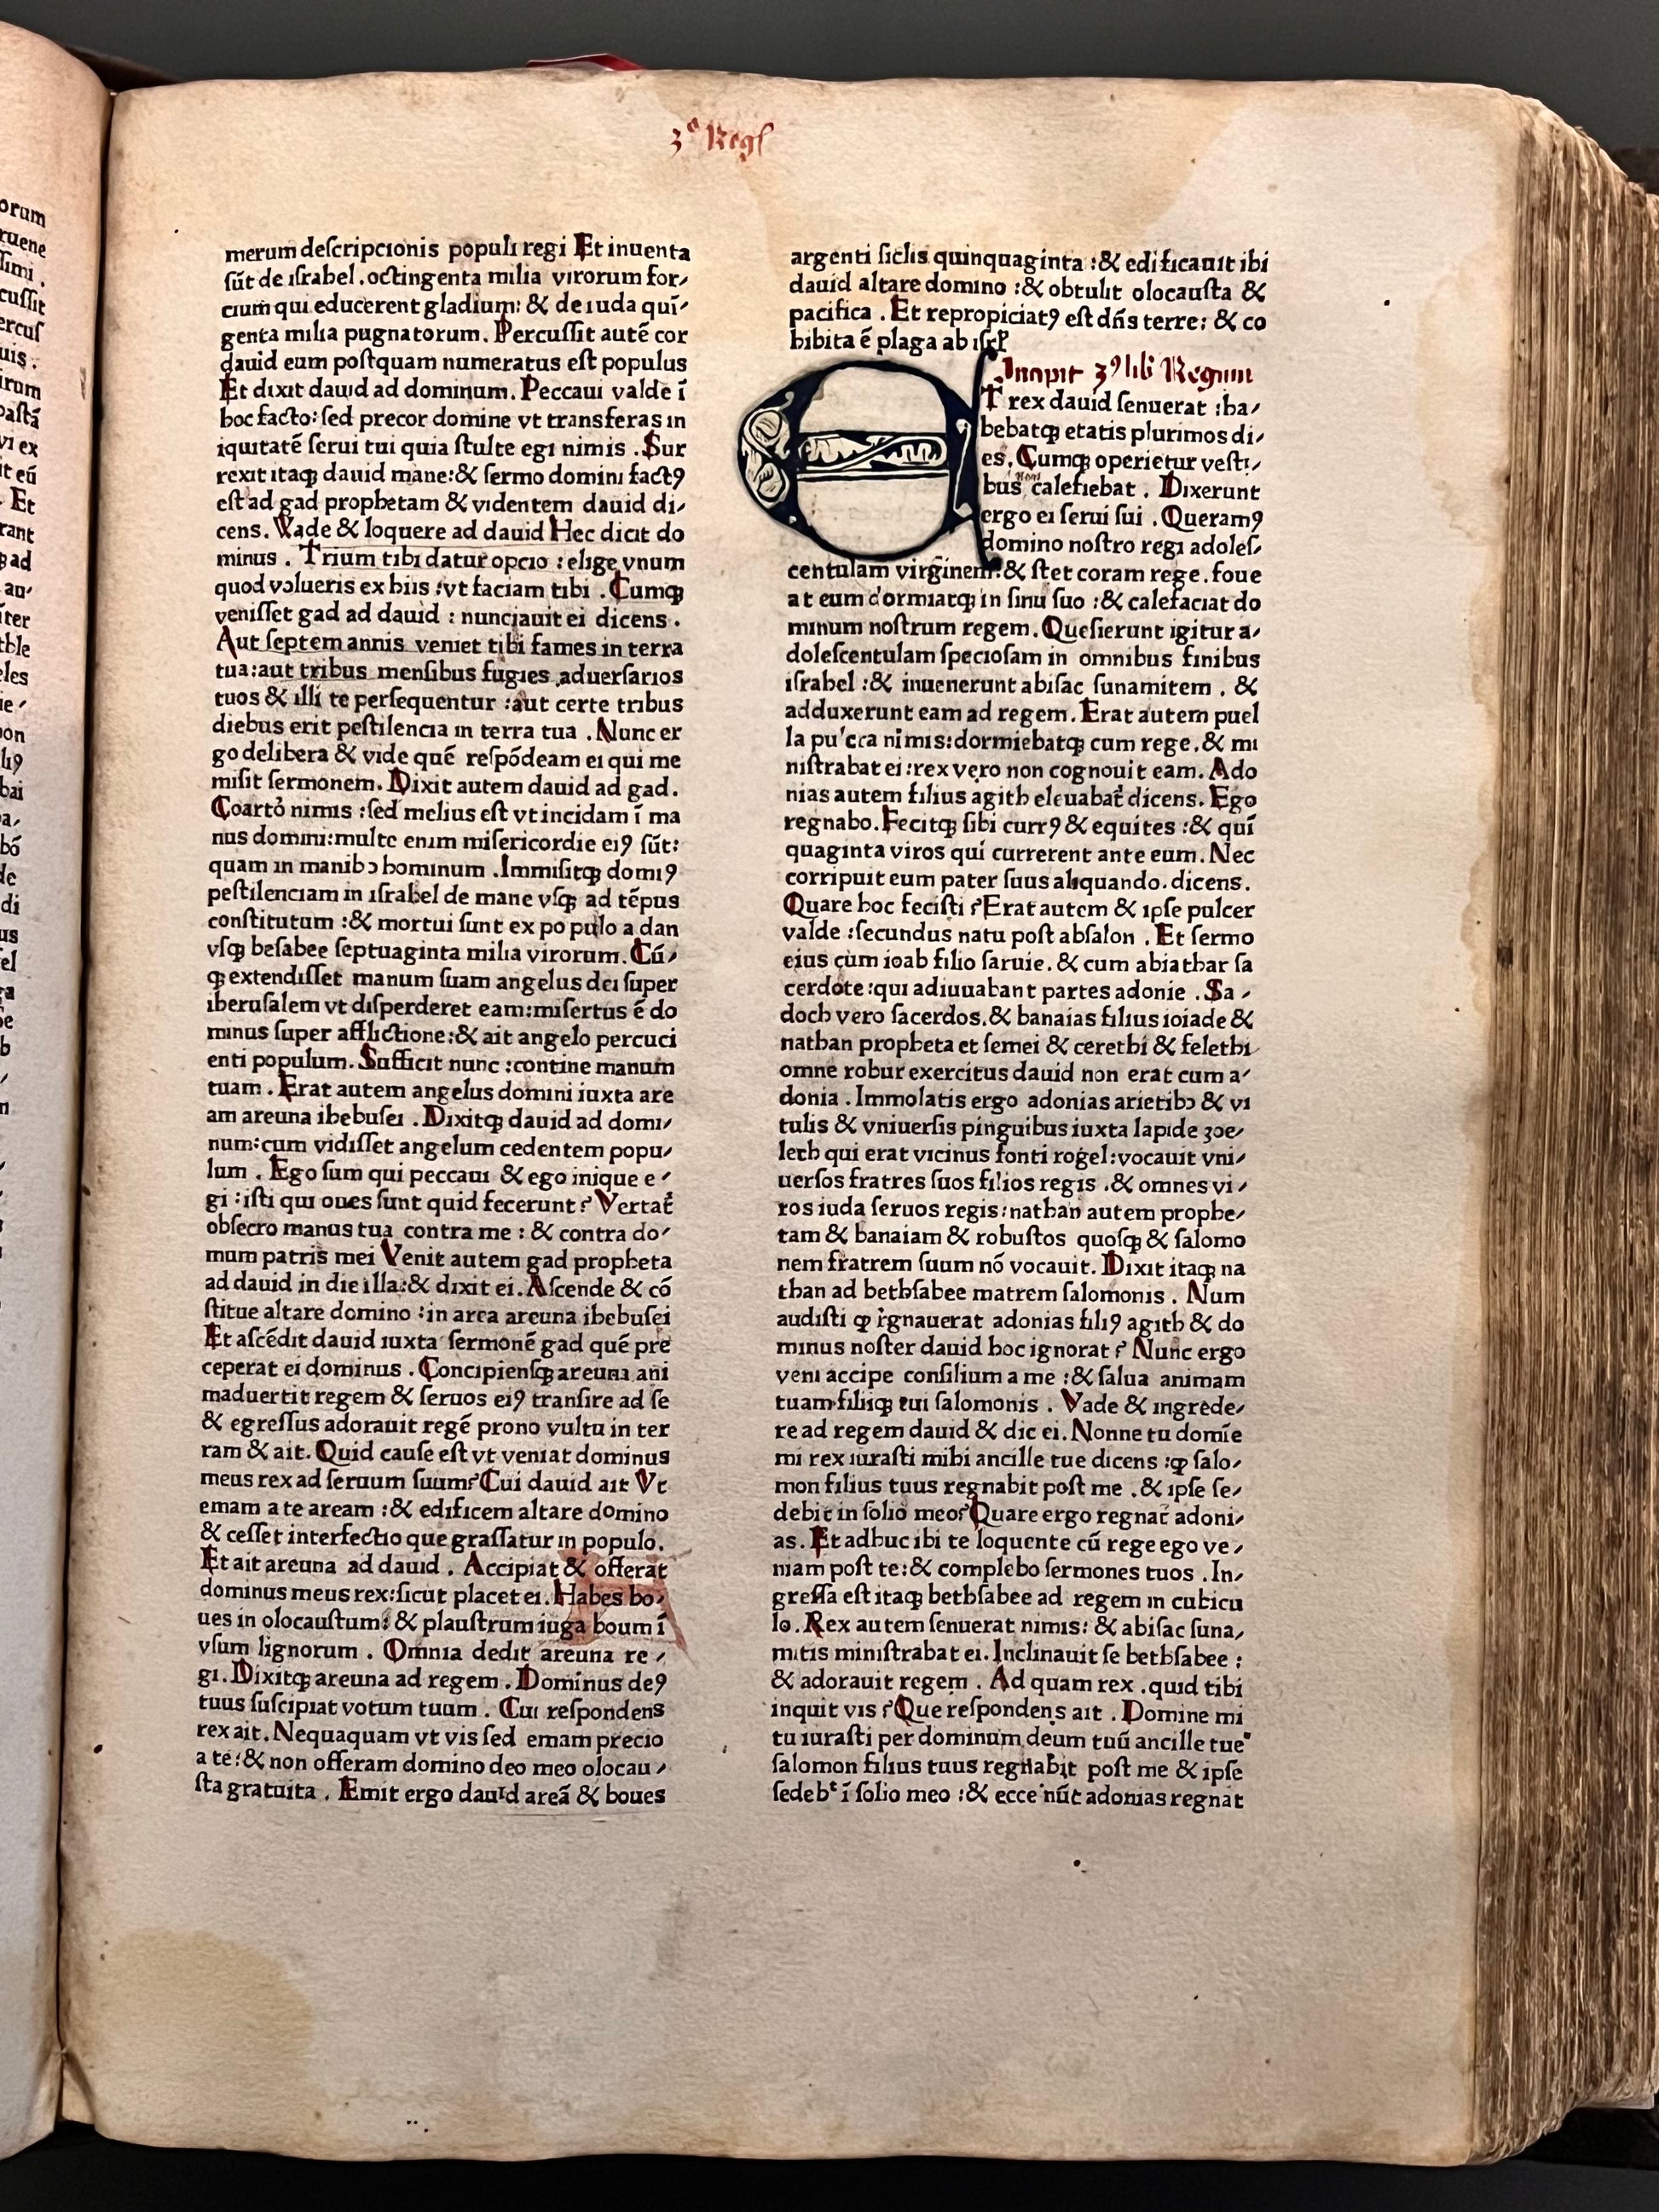 3ª Regſ
merum deſcripcionis populi regi Et inuenta
ſūt de iſrabel . octingenta milia virorum for⸗
cium qui educerent gladium: & de iuda quī⸗
genta milia pugnatorum . Percuſſit autē cor
dauid eum poſtquam numeratus eſt populus
Et dixit dauid ad dominum . Peccaui valde ī
hoc facto: ſed precor domine vt transferas in
iquitatē ſerui tui quia ſtulte egi nimis . Sur
rexit itaqꝫ dauid mane: & ſermo domini factꝰ
eſt ad gad prophetam & videntem dauid di⸗
cens . Wade & loquere ad dauid Hec dicit do
minus . Trium tibi datur opcio : elige vnum
quod volueris ex hiis : vt faciam tibi . Cumqꝫ
veniſſet gad ad dauid : nunciauit ei dicens .
Aut ſeptem annis veniet tibi fames in terra
tua: aut tribus menſibus fugies aduerſarios
tuos & illi te perſequentur : aut certe tribus
diebus erit peſtilencia in terra tua . Nunc er
go delibera & vide quē reſpōdeam ei qui me
miſit ſermonem . Dixit autem dauid ad gad .
Coartoꝛ nimis : ſed melius eſt vt incidam ī ma
nus domini: multe enim miſericordie eiꝰ ſūt:
quam in manibꝰ hominum . Immiſitqꝫ domiꝰ
peſtilenciam in iſrahel de mane vſqꝫ ad tēpus
conſtitutum : & mortui ſunt ex populo a dan
vſqꝫ beſabee ſeptuaginta milia virorum . Cū⸗
qꝫ extendiſſet manum ſuam angelus dei ſuper
iheruſalem vt diſperderet eam: miſertus ē do
minus ſuper afflictione: & ait angelo percuci
enti populum . Sufficit nunc : contine manum
tuam . Erat autem angelus domini iuxta are
am areuna ihebuſei . Dixitqꝫ dauid ad domi⸗
num: cum vidiſſet angelum cedentem popu⸗
lum . Ego ſum qui peccaui & ego inique e⸗
gi : iſti qui oues ſunt quid fecerunt? Vertat̄
obſecro manus tua contra me : & contra do⸗
mum patris mei Venit autem gad propheta
ad dauid in die illa: & dixit ei . Aſcende & cō
ſtitue altare domino : in area areuna ihebuſei
Et aſcēdit dauid iuxta ſermonē gad quē pre
ceperat ei dominus . Concipienſqꝫ areuna ani
maduertit regem & ſeruos eiꝰ tranſire ad ſe
& egreſſus adorauit regē prono vultu in ter
ram & ait . Quid cauſe eſt vt veniat dominus
meus rex ad ſeruum ſuum? Cui dauid ait Vt
emam a te aream : & edificem altare domino
& ceſſet interfectio que graſſatur in populo .
Et ait areuna ad dauid . Accipiat & offerat
dominus meus rex: ſicut placet ei . Habes bo⸗
ues in olocauſtum: & plauſtrum iuga boum ī
vſum lignorum . Omnia dedit areuna re⸗
gi . Dixitqꝫ areuna ad regem . Dominus deꝰ
tuus ſuſcipiat votum tuum . Cui reſpondens
rex ait . Nequaquam vt vis ſed emam precio
a te: & non offeram domino deo meo olocau⸗
ſta gratuita . Emit ergo dauid areā & boues
argenti ſiclis quinquaginta : & edificauit ibi
dauid altare domino : & obtulit olocauſta &
pacifica . Et repropiciatꝰ eſt dn̄s terre: & co
hibita ē plaga ab iſrl̄
Incipit 3ꝰ lib̄ Regum
E
T rex dauid ſenuerat : ha⸗
bebatqꝫ etatis plurimos di⸗
es . Cumqꝫ operietur veſti⸗
bus non calefiebat . Dixerunt
ergo ei ſerui ſui . Queramꝰ
domino noſtro regi adoleſ⸗
centulam virginem: & ſtet coram rege . foue
at eum dormiatqꝫ in ſinu ſuo : & calefaciat do
minum noſtrum regem . Queſierunt igitur a⸗
doleſcentulam ſpecioſam in omnibus finibus
iſrahel : & inuenerunt abiſac ſunamitem . &
adduxerunt eam ad regem . Erat autem puel
la pulcra nimis: dormiebatqꝫ cum rege . & mi
niſtrabat ei : rex vero non cognouit eam . Ado
nias autem filius agith eleuabat̄ dicens . Ego
regnabo . Fecitqꝫ ſibi currꝰ & equites : & quī
quaginta viros qui currerent ante eum . Nec
corripuit eum pater ſuus aliquando . dicens .
Quare hoc feciſti? Erat autem & ipſe pulcer
valde : ſecundus natu poſt abſalon . Et ſermo
eius cum ioab filio ſaruie . & cum abiathar ſa
cerdote: qui adiuuabant partes adonie . Sa⸗
doch vero ſacerdos . & banaias filius ioiade &
nathan propheta et ſemei & cerethi & felethi
omne robur exercitus dauid non erat cum a⸗
donia . Immolatis ergo adonias arietibꝰ & vi
tulis & vniuerſis pinguibus iuxta lapidē zoe⸗
leth qui erat vicinus fonti rogel: vocauit vni⸗
uerſos fratres ſuos filios regis . & omnes vi⸗
ros iuda ſeruos regis: nathan autem prophe⸗
tam & banaiam & robuſtos quoſqꝫ & ſalomo
nem fratrem ſuum nō vocauit . Dixit itaqꝫ na
than ad bethſabee matrem ſalomonis . Num
audiſti ꝙ rͤgnauerat adonias filiꝰ agith & do
minus noſter dauid hoc ignorat? Nunc ergo
veni accipe conſilium a me : & ſalua animam
tuam filiiqꝫ tui ſalomonis . Vade & ingrede⸗
re ad regem dauid & dic ei . Nonne tu domīe
mi rex iuraſti mihi ancille tue dicens : ꝙ ſalo⸗
mon filius tuus regnabit poſt me . & ipſe ſe⸗
debit in ſolio meo? Quare ergo regnat̄ adoni⸗
as . Et adhuc ibi te loquente cū rege ego ve⸗
niam poſt te: & complebo ſermones tuos . In⸗
greſſa eſt itaqꝫ bethſabee ad regem in cubicu
lo . Rex autem ſenuerat nimis: & abiſac ſuna⸗
mitis miniſtrabat ei . Inclinauit ſe bethſabee :
& adorauit regem . Ad quam rex . quid tibi
inquit vis? Que reſpondens ait . Domine mi
tu iuraſti per dominum deum tuū ancille tue
ſalomon filius tuus regnabit poſt me & ipſe
ſedebᵗ ī ſolio meo : & ecce nūc adonias regnat